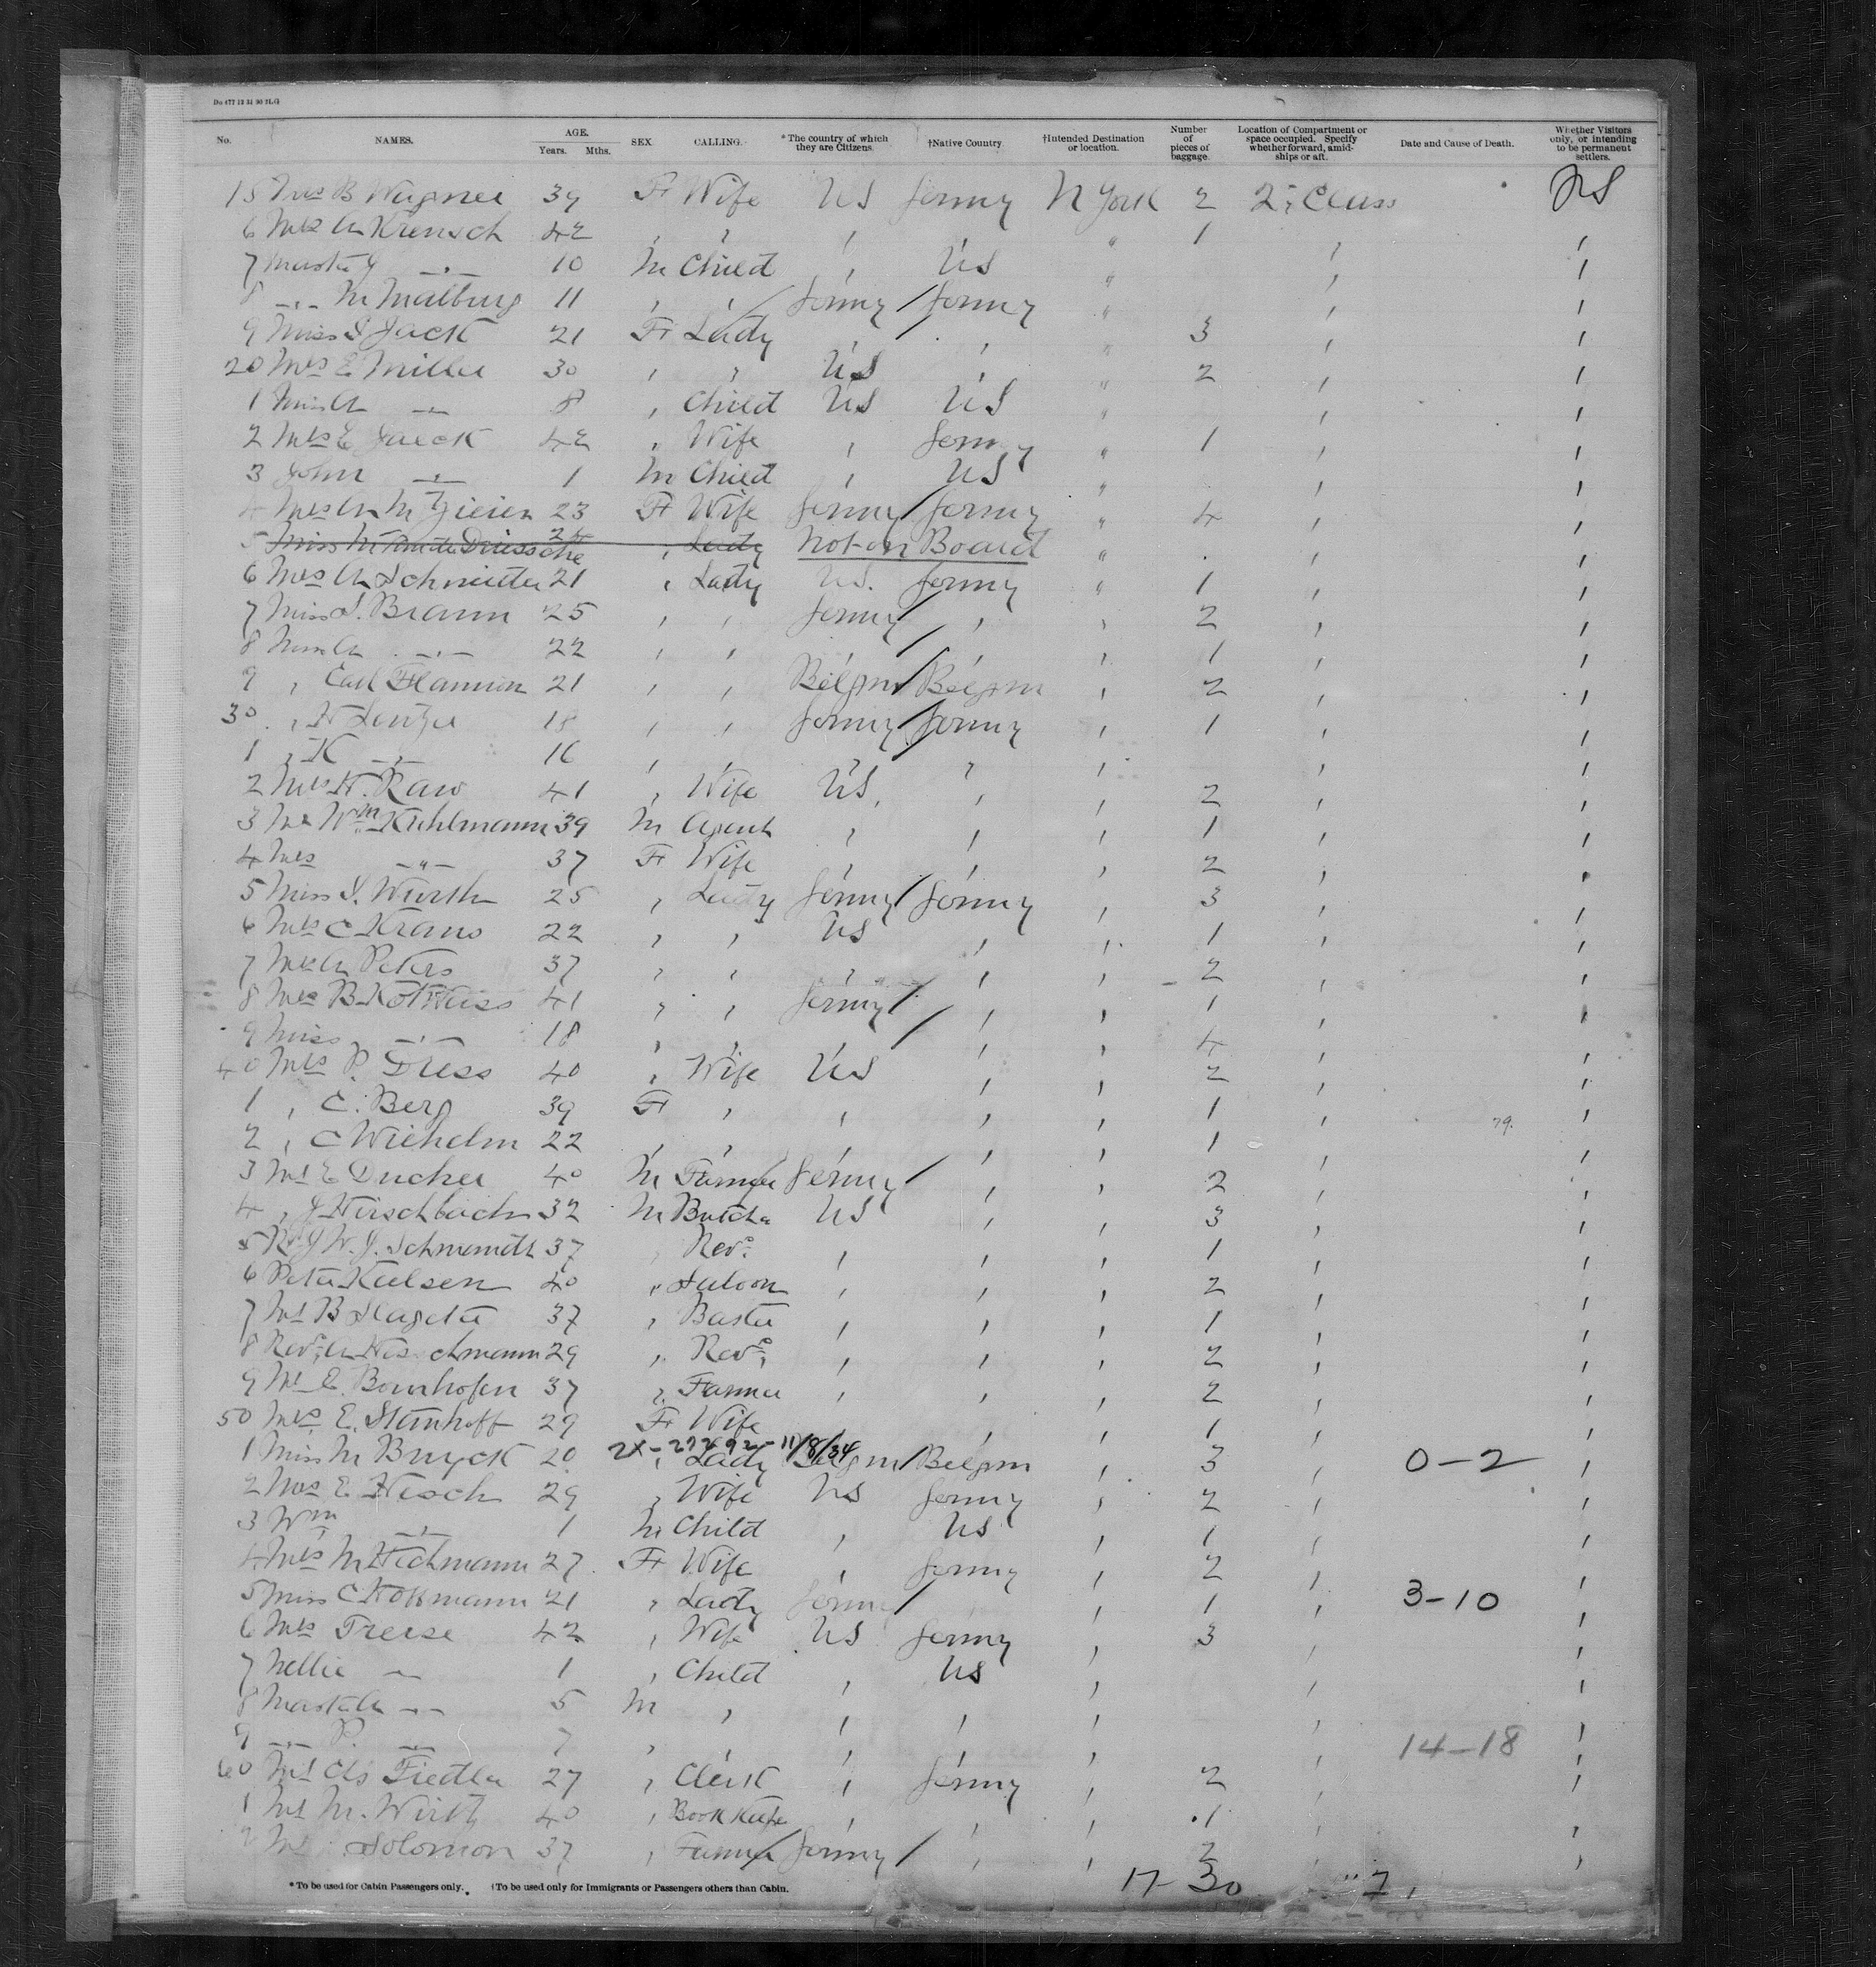 No. NAMES. AGE. Years. Mths. SEX CALLING. *The country of which they are Citizens. †Native Country. †Intended Destination or location. Number of pieces of baggage. Location of Compartment or space occupied. Specify whether forward, amidships or aft. Date and Cause of Death. Whether Visitors only, or intending to be permanent settlers.
15 Mrs B Wagner 39 F Wife US Germy N York 2 2nd Class US
6 Mrs A Krensch 42 " " " " " 1 " "
7 Master J —"— 10 M Child " US " " "
8 —"— M Malburg 11 " " Germy / Germy " " "
9 Miss S Jack 21 F Lady " " " 3 " "
20 Mrs E Miller 30 " " US " " 2 " "
1 Miss A —"— 8 " Child US US " " "
2 Mrs E Jaeck 42 " Wife " Germy " 1 " "
3 John —"— 1 M Child " US " " "
4 Mrs A M 23 F Wife Germy / Germy " 4 " "
5 Miss M 24 " Lady Not on Board " " "
6 Mrs A Schmidter 21 " Lady US. Germy " 1 " "
7 Miss S. Braun 25 " " Germy / " " 2 " "
8 Miss A —"— 22 " " " / " " 1 " "
9 " Flamion 21 " " Belgm / Belgm " 2 " "
30 " H 18 " " Germy / Germy " 1 " "
1 " K —"— 16 " " " " " " "
2 Mrs H. Raw 41 " Wife US. " " 2 " "
3 Mr Wm Kuhlmann 39 M Agent " " " 1 " "
4 Mrs —"— 37 F Wife " " " 2 " "
5 Miss S. Wurth 25 " Lady Germy / Germy " 3 " "
6 Mrs C Kraus 22 " " US " " 1 " "
7 Mrs A Peters 37 " " " " " 2 " "
8 Mrs B 41 " " Germy / " " 1 " "
9 Miss —"— 18 " " " / " " 4 " "
40 Mrs P. Dress 40 " Wife US " " 2 " "
1 " C. Berg 39 F " " " " 1 " "
2 " C Wilhelm 22 " " " " " 1 " "
3 Mr E Ducher 40 M Farmer Germy / " " 2 " "
4 " J Hirschbach 32 M Butcher US " " 3 " "
5 Rev J W. J. 37 " Revd. " " " 1 " "
6 Peter Kielsen 40 " Saloon " " " 2 " "
7 Mr B 37 " " " " 1 " "
8 Revd. A 29 " Revd. " " " 2 " "
9 Mr E. Bornhofen 37 " Farmer " " " 2 " "
50 Mrs E. Steinhoff 29 F Wife " " 1 " "
2X-272692-11/8/34
1 Miss M Bruyck 20 " Lady Belgm / Belgm " 3 " 0-2 "
2 Mrs E. Hesch 29 " Wife US Germy " 2 " "
3 Wm —"— 1 M Child " US " 1 " "
4 Mrs M Hechmann 27 F Wife " Germy " 2 " "
5 Miss C 21 " Lady Germy / " 1 " 3-10 "
6 Mrs Treese 42 " Wife US Germy " 3 " "
7 Nellie —"— 1 " Child " US " " "
8 Master A —"— 5 M " " " " " "
9 —"— P. —"— 7 " " " " " " 14-18 "
60 Mr Chs Fiedler 27 " Clerk " Germy " 2 " "
1 Mr M. Wirtz 40 " Book Keeper " " " 1 " "
2 Mr Solomon 37 " Farmer Germy / " " 2 " "
*To be used for Cabin Passengers only. †To be used only for Immigrants or Passengers others than Cabin.
17-30